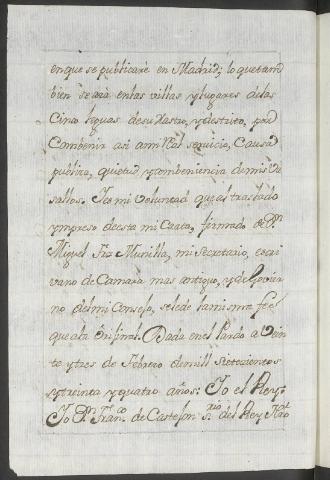 en que se publicare en Madrid; lo que tam
bien se ará en las villas y lugares de las
Cinco leguas de su dastro, y destrito, por
Combenir asi a mi Rl servicio, Causa
publica, quietud y combeniencia de mis Va
sallos. Ies mi Voluntad que el traslado
ympreso de esta mi Carta, firmado de Dn
Miguel Frz Munilla, mi Secretario, escri
vano de Camara mas antiguo, y de Govier
no del mi Consejo, se le de la misma feé
que a la Original. Dada en el Pardo a Vein
te y tres de Febrero de mill Setecientos
y treinta y quatro años: Io el Rey:
Io Dn Franco de Castejon Srio del Rey Nro